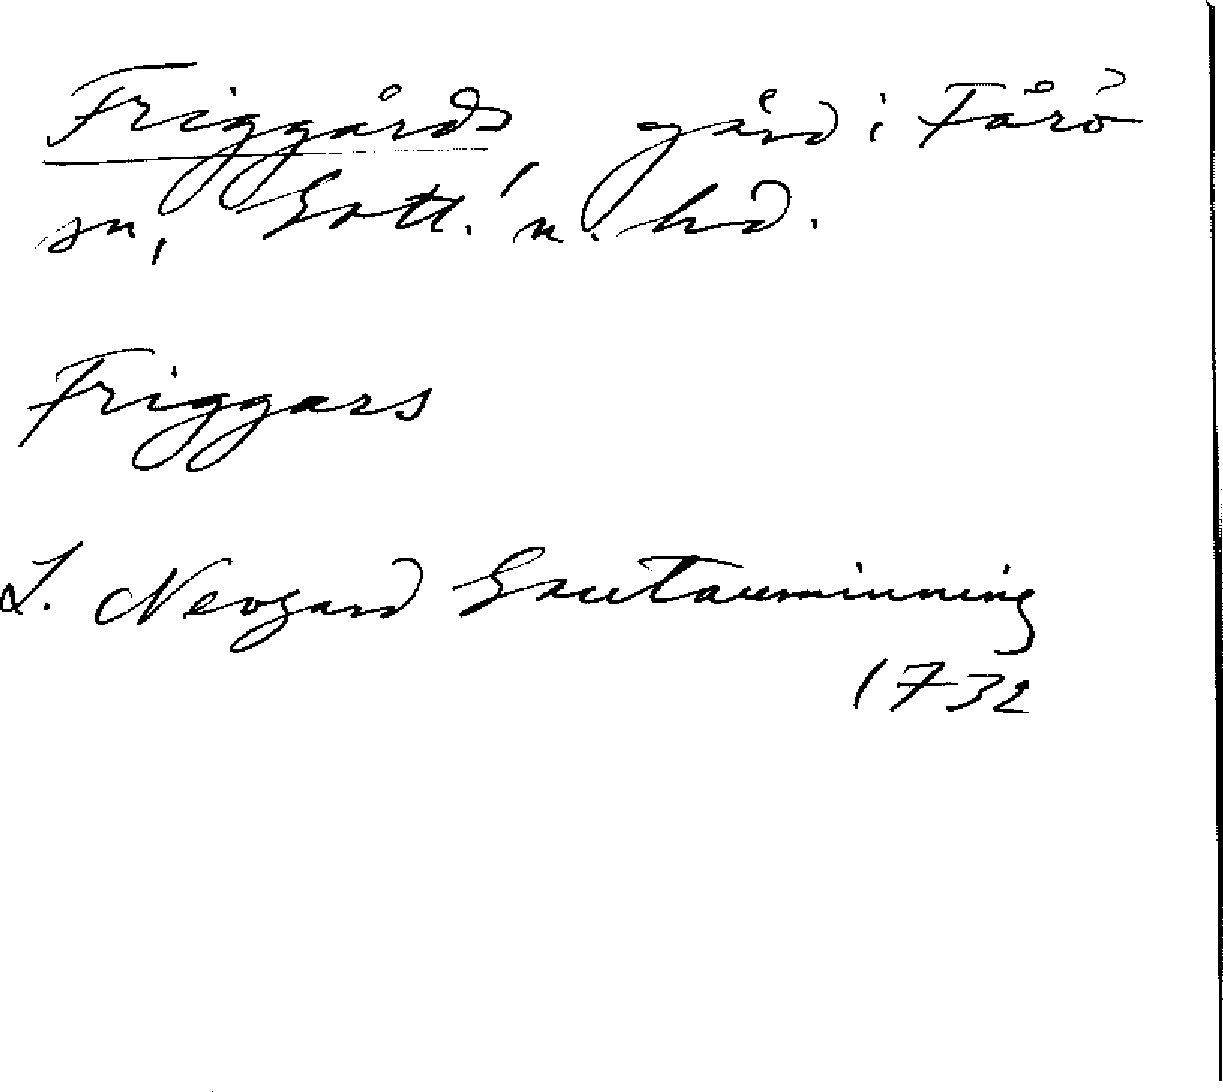 Friggårds gård i Fårö
sn, Gotl. n. hd.
Friggars
L. Neogard Gautauminning
1732